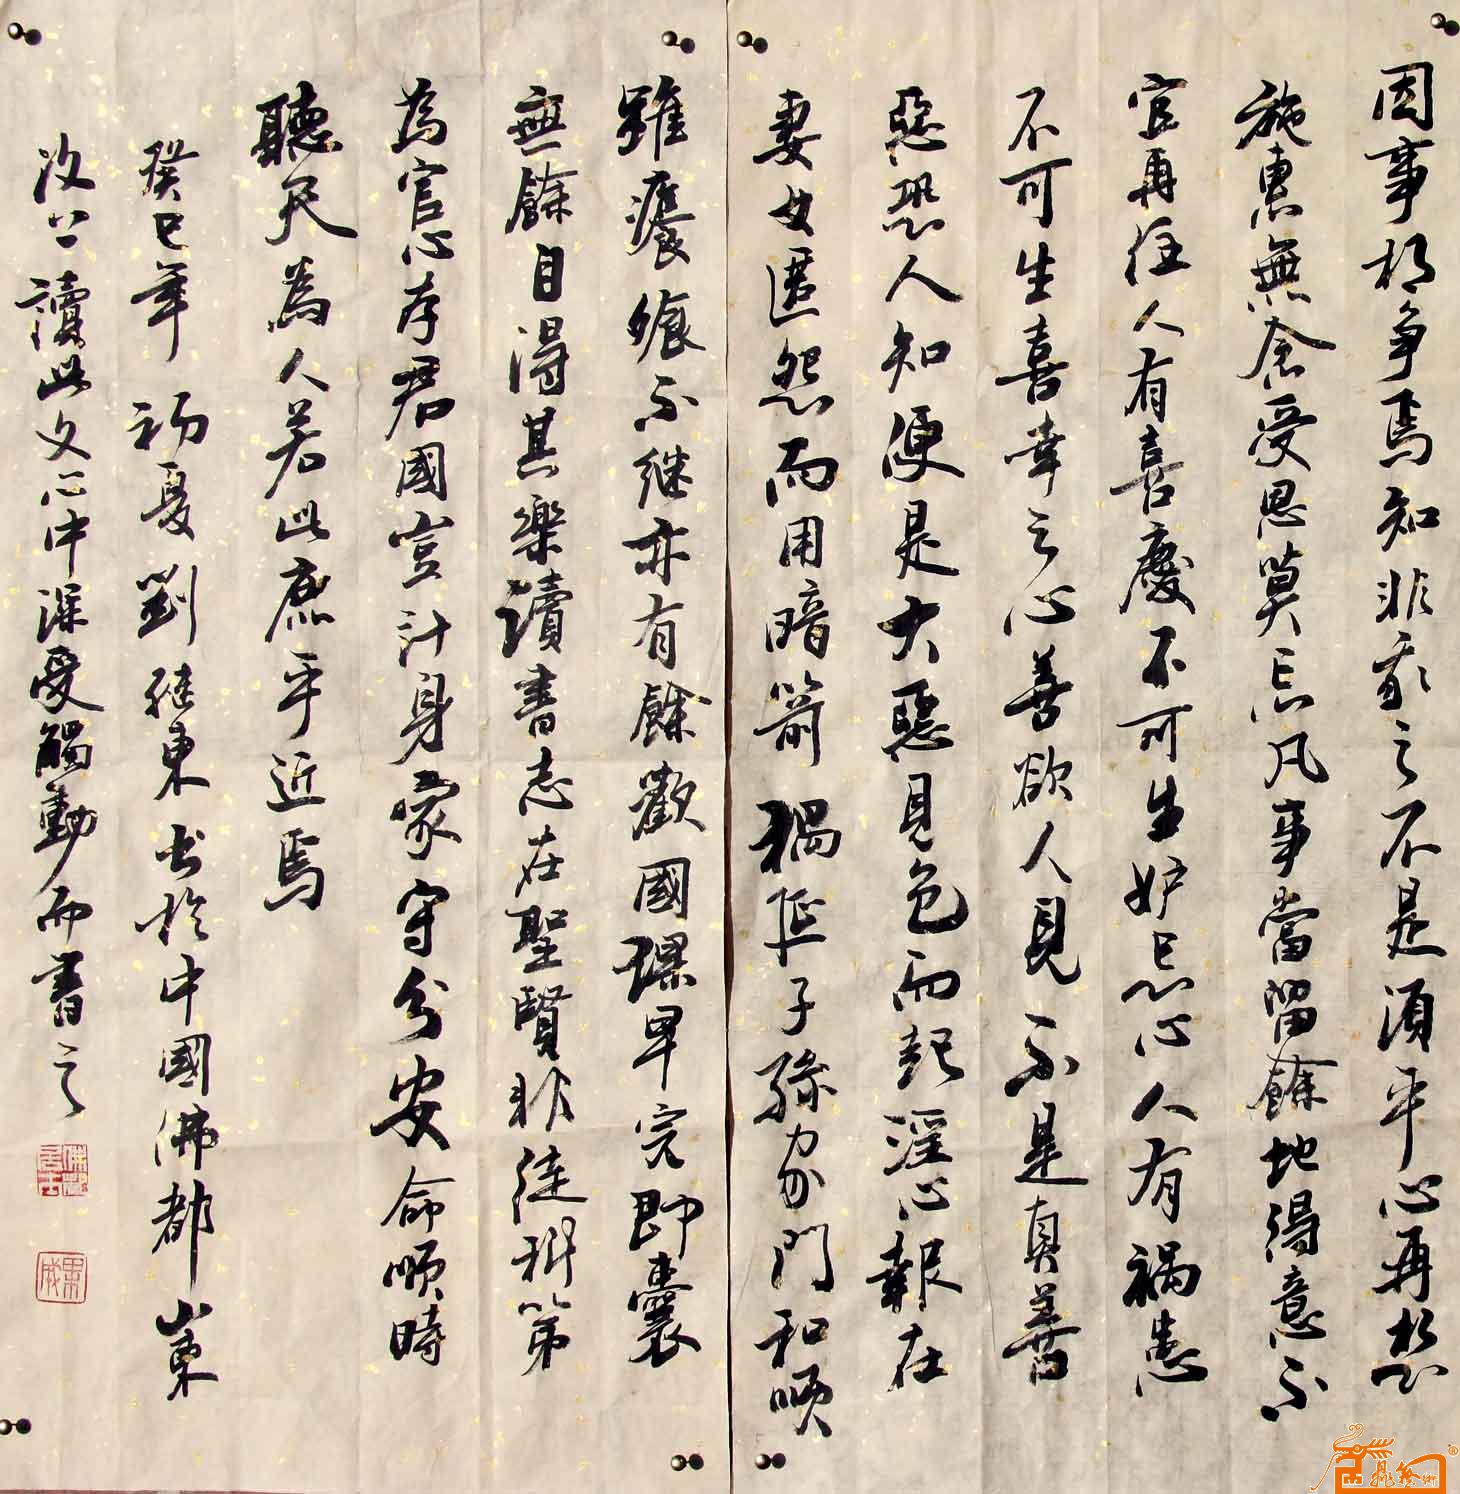 因事相争焉知非我之不是須平心再想
施惠無念受恩莫忘凡事當留餘地得意不
宜再往人有喜慶不可生妒忌心人有禍患
不可生喜幸之心善欲人見不是真善
惡恐人知便是大惡見色而起淫心報在
妻女匿怨而用暗箭禍延子孫家門和順
雖饔飧不继亦有餘歡國課早完即囊
無餘自得其樂讀書志在聖賢非徒科第
為官心存君國豈计身家守分安命順時
聽天為人若此庶乎近焉
癸巳年初夏劉继東书於中國佛都山東
汶上讀此文心中深受觸動而書之